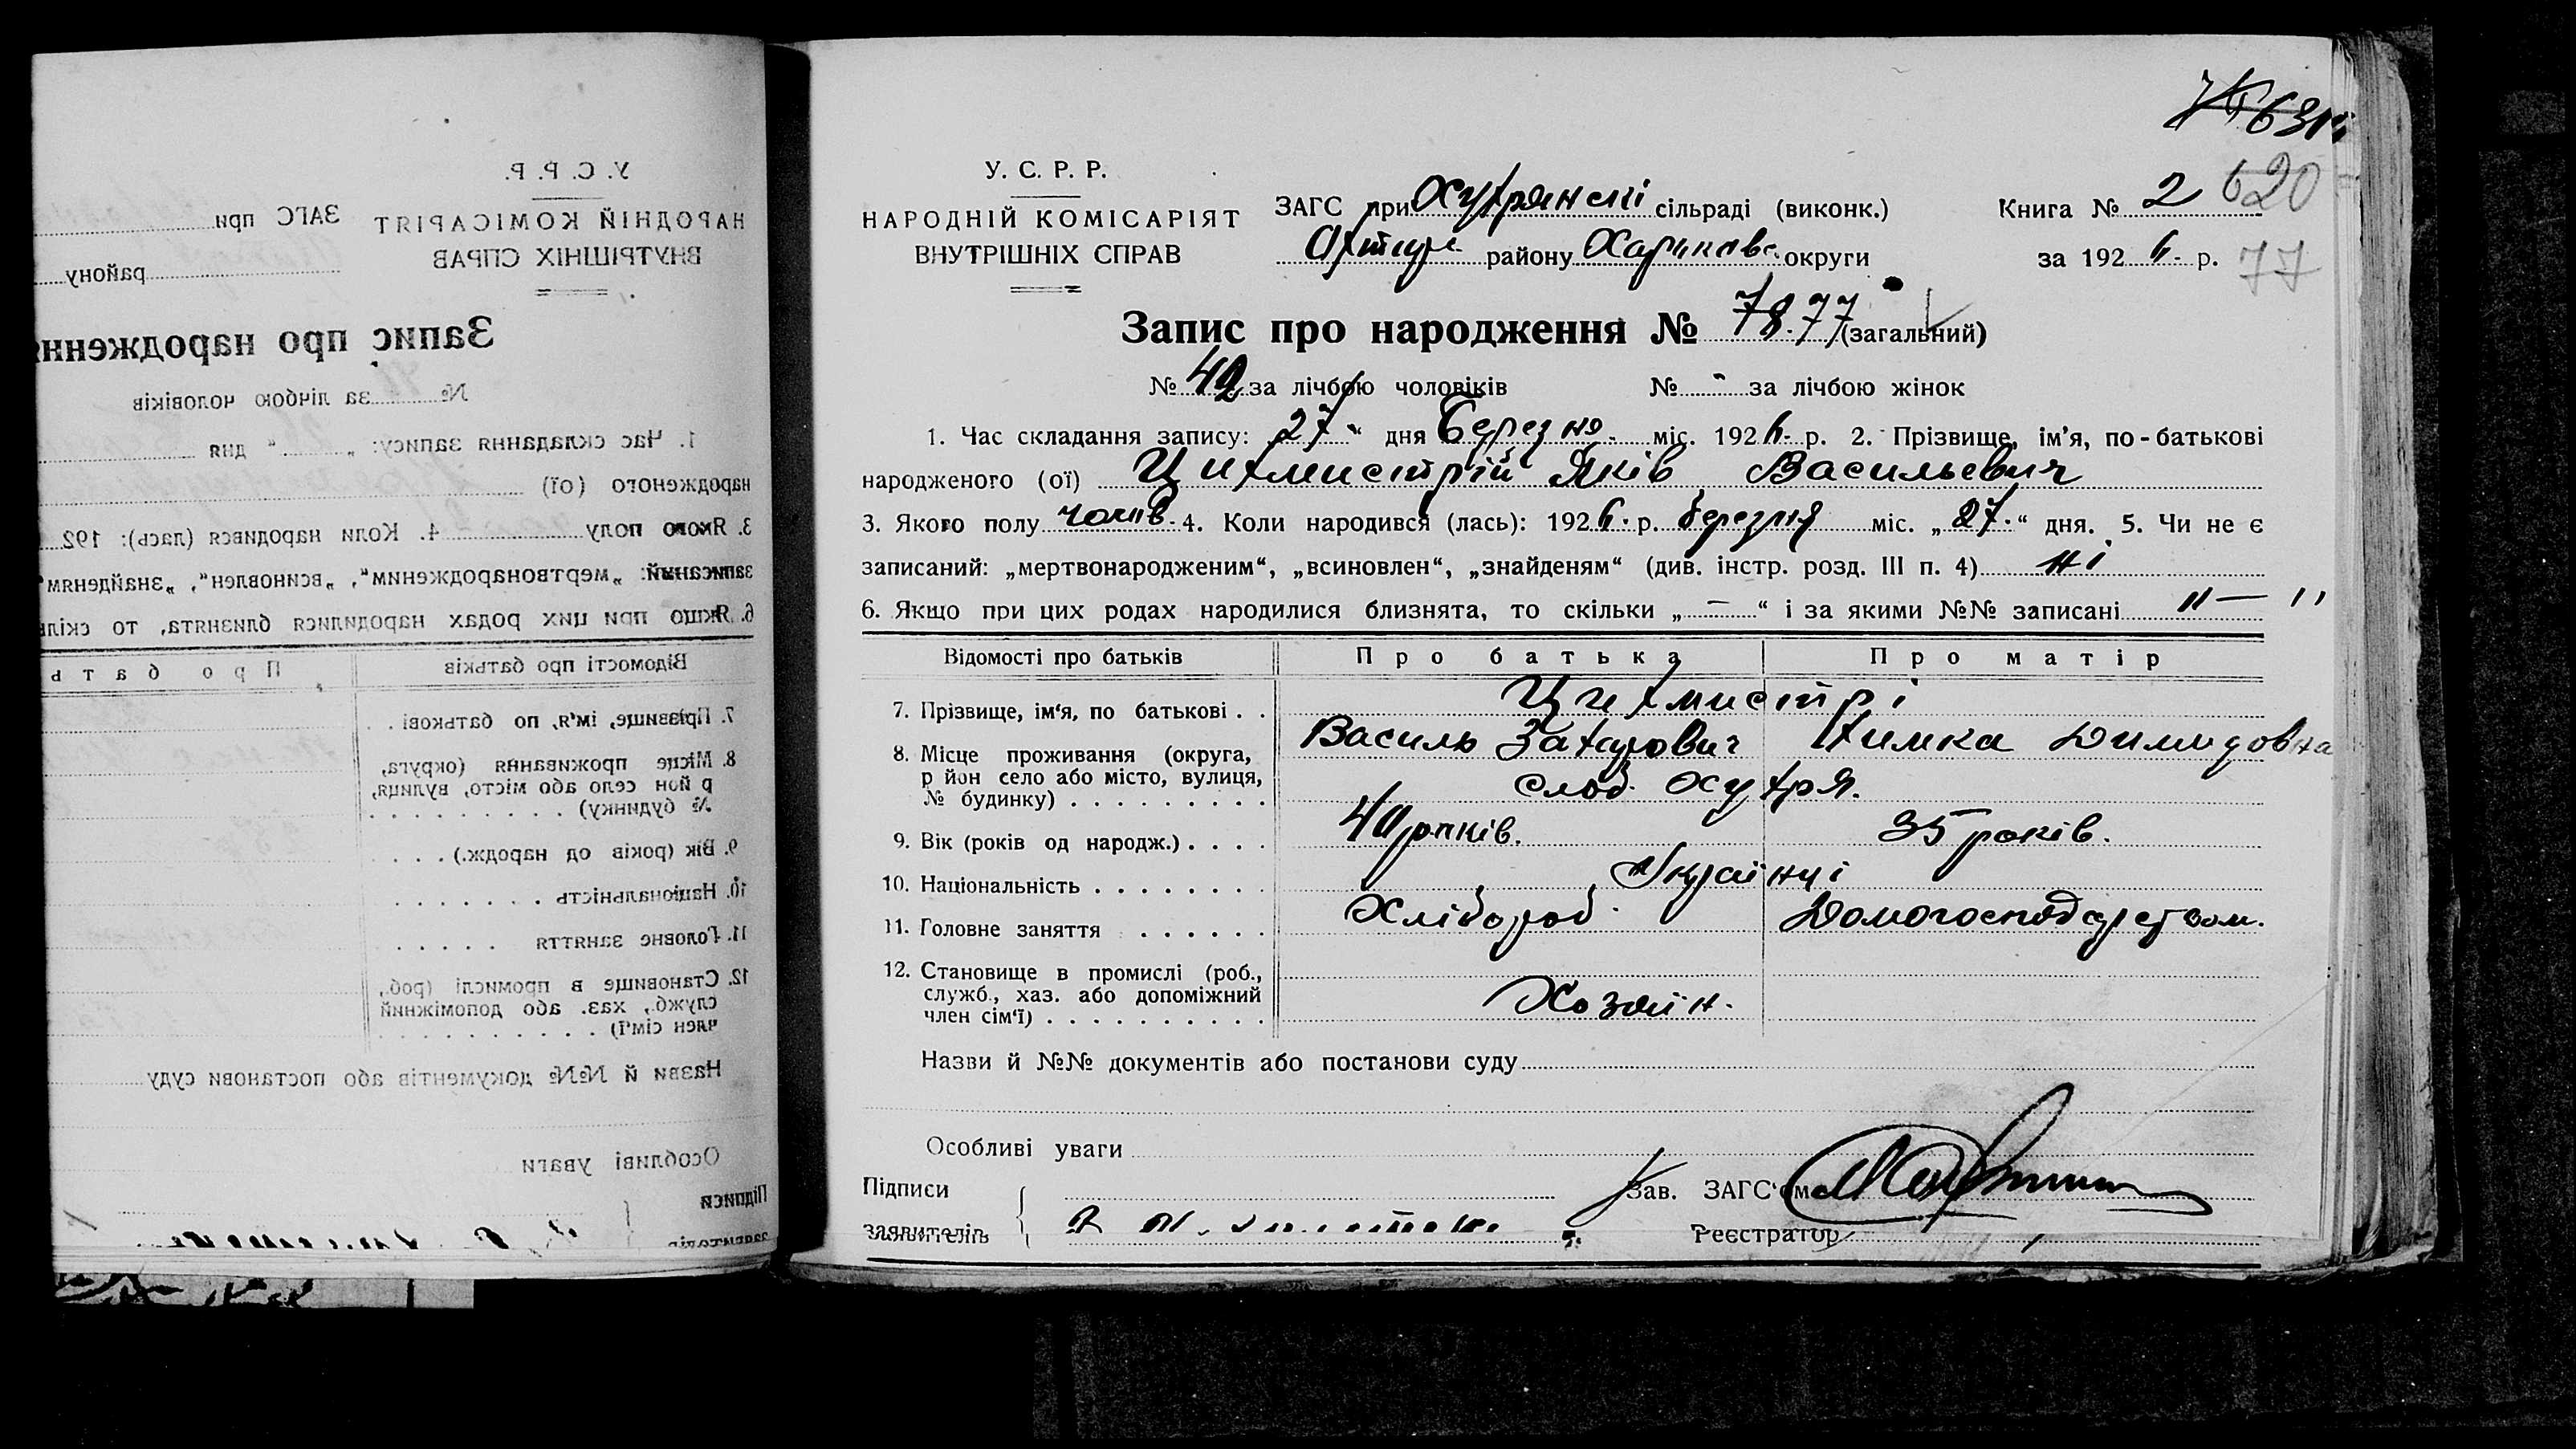 У. С. Р. Р.
НАРОДНІЙ КОМІСАРІЯТ
ВНУТРІШНІХ СПРАВ
ЗАГС при Охтрянскі сільраді (виконк.)
Охтир. району Харьківс. округи
Книга № 2 620
за 1926. р. 77
Запис про народження № 78. 77 (загальний)
№ 42 за лічбою чоловіків № " за лічбою жінок
1. Час складання запису: 27 " дня Березня. міс. 1926. р. 2. Прізвище, ім'я, по-батькові
народженого (ої) Цихмистрій Яків Васильевич
3. Якого полу чолов. 4. Коли народився (лась): 1926. р. березня міс. „ 27. “ дня. 5. Чи не є
записаний: „мертвонародженим“, „всиновлен“, „знайденям“ (див. інстр. розд. III п. 4) ні
6. Якщо при цих родах народилися близнята, то скільки „ — “ і за якими №№ записані "—"
Відомості про батьків Про батька Про матір
7. Прізвище, ім‘я, по батькові . . Цихмистрі
Василь Захарович Химка Димидовна
8. Місце проживання (округа,
р йон село або місто, вулиця,
№ будинку) . . . . . . . . . слоб. Хухря.
9. Вік (років од народж.) . . . . 40 років. 35 років.
10. Національність . . . . . . . . Українці
11. Головне заняття . . . . . . Хлібороб. Домогосподарством.
12. Становище в промислі (роб.,
служб., хаз. або допоміжний
член сім‘ї) . . . . . . . . . . Хозяїн.
Назви й №№ документів або постанови суду
Особливі уваги
Підписи
заявителів
Зав. ЗАГС‘ом
Реєстратор